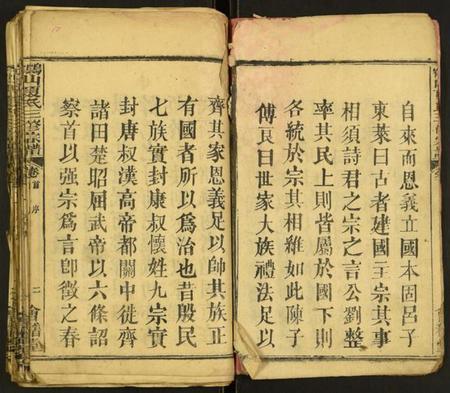 自來而恩義立國本固呂子
東萊曰古者建國立宗其事
相須詩君之宗之言公劉整
率其民上則皆屬於國下則
各統於宗其相維如此陳子
傅良曰世家大族禮法足以
齊其家恩義足以帥其族正
有國者所以爲治也昔殷民
七族實封康叔懷姓九宗實
封唐叔漢高帝都關中徙齊
諸田楚昭屈武帝以六條詔
察首以強宗爲言卽徵之春
三修宗譜
卷首 序
二